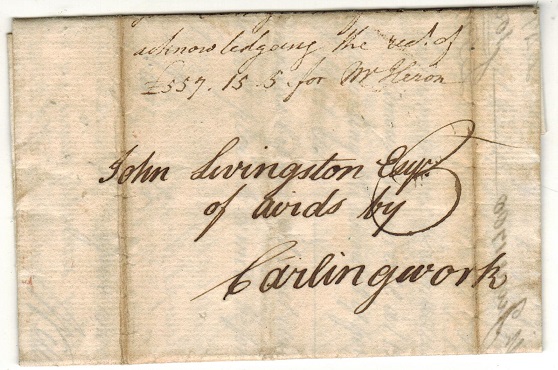 acknowledgeing the rect. of
£557. 15. 5. for Mr Heron
John Livingston Esqr.
of airds by
Carlingwork